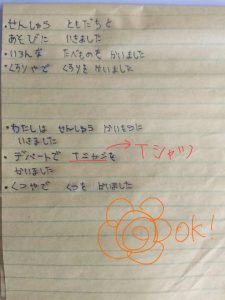 ・せんしゅう ともだちと
あそびに いきました
・いろんな たべものを かいました
・くすりやで くすりを かいました
・わたしは せんしゅう かいもつに
いきました
・デパートで Tニャニを
→Tシャツ
かいました
・くつやで くつを かいました
OK!